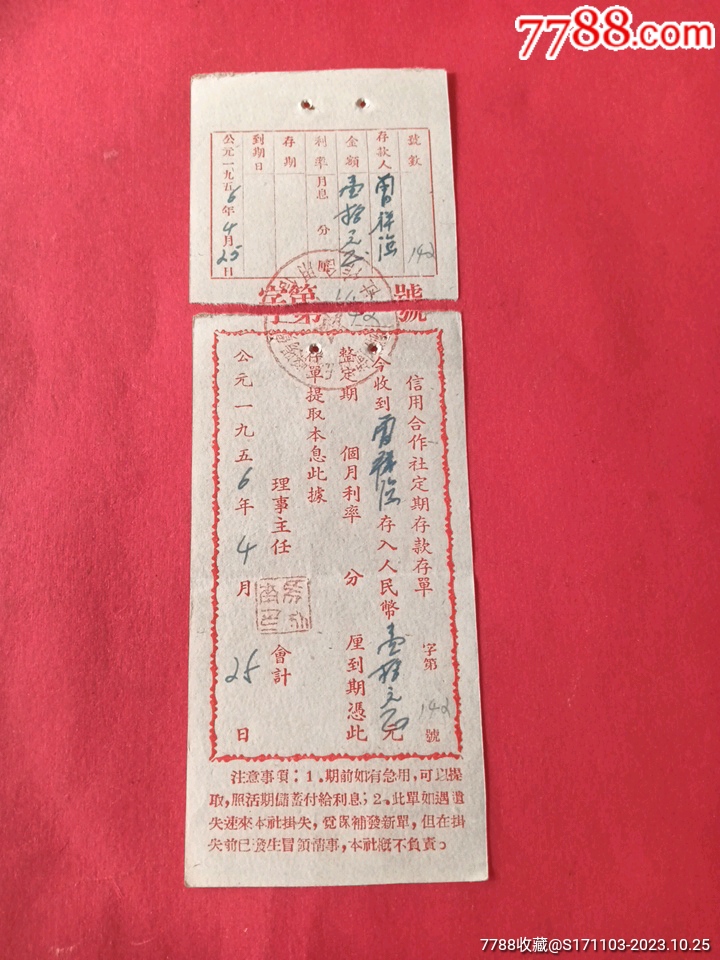 7788.com
號數 142
存款人
金額 壹拾元正
利率 月息 分 厘
存期
到期日
公元一九五6年4月25日
字第 142 號
信用合作社定期存款存單 字第 142 號
今收到 存入人民幣 壹拾元正 元
整定期 個月利率 分 厘到期憑此
存單提取本息此據
理事主任 會計
公元一九五6年4月25日
注意事項：1、期前如有急用，可以提
取，照活期儲蓄付給利息；2、此單如遇遺
失速來本社掛失，覓保補發新單，但在掛
失前已發生冒領情事，本社概不負責。
7788收藏@S171103-2023.10.25